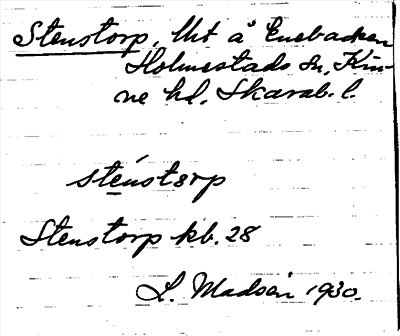 Stenstorp. Uct å Enebacken
Holmestads sn, Kin-
ne hd, Skarab. l.
sténstərp
Stenstorp kb. 28
L. Madsén 1930.